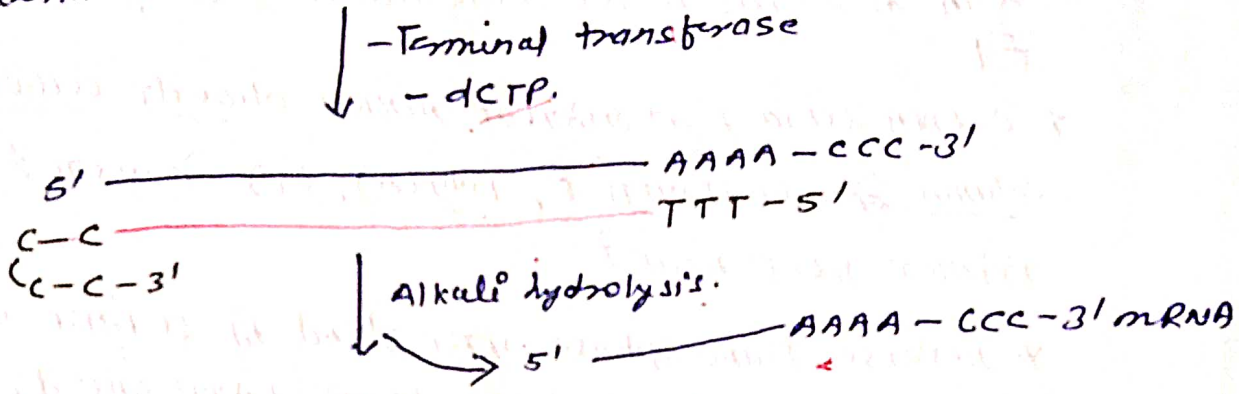 -Terminal transferase
- dCTP.
5' AAAA-CCC-3'
TTT-5'
C-C
C-C-3'
Alkali hydrolysis.
5' AAAA-CCC-3' mRNA